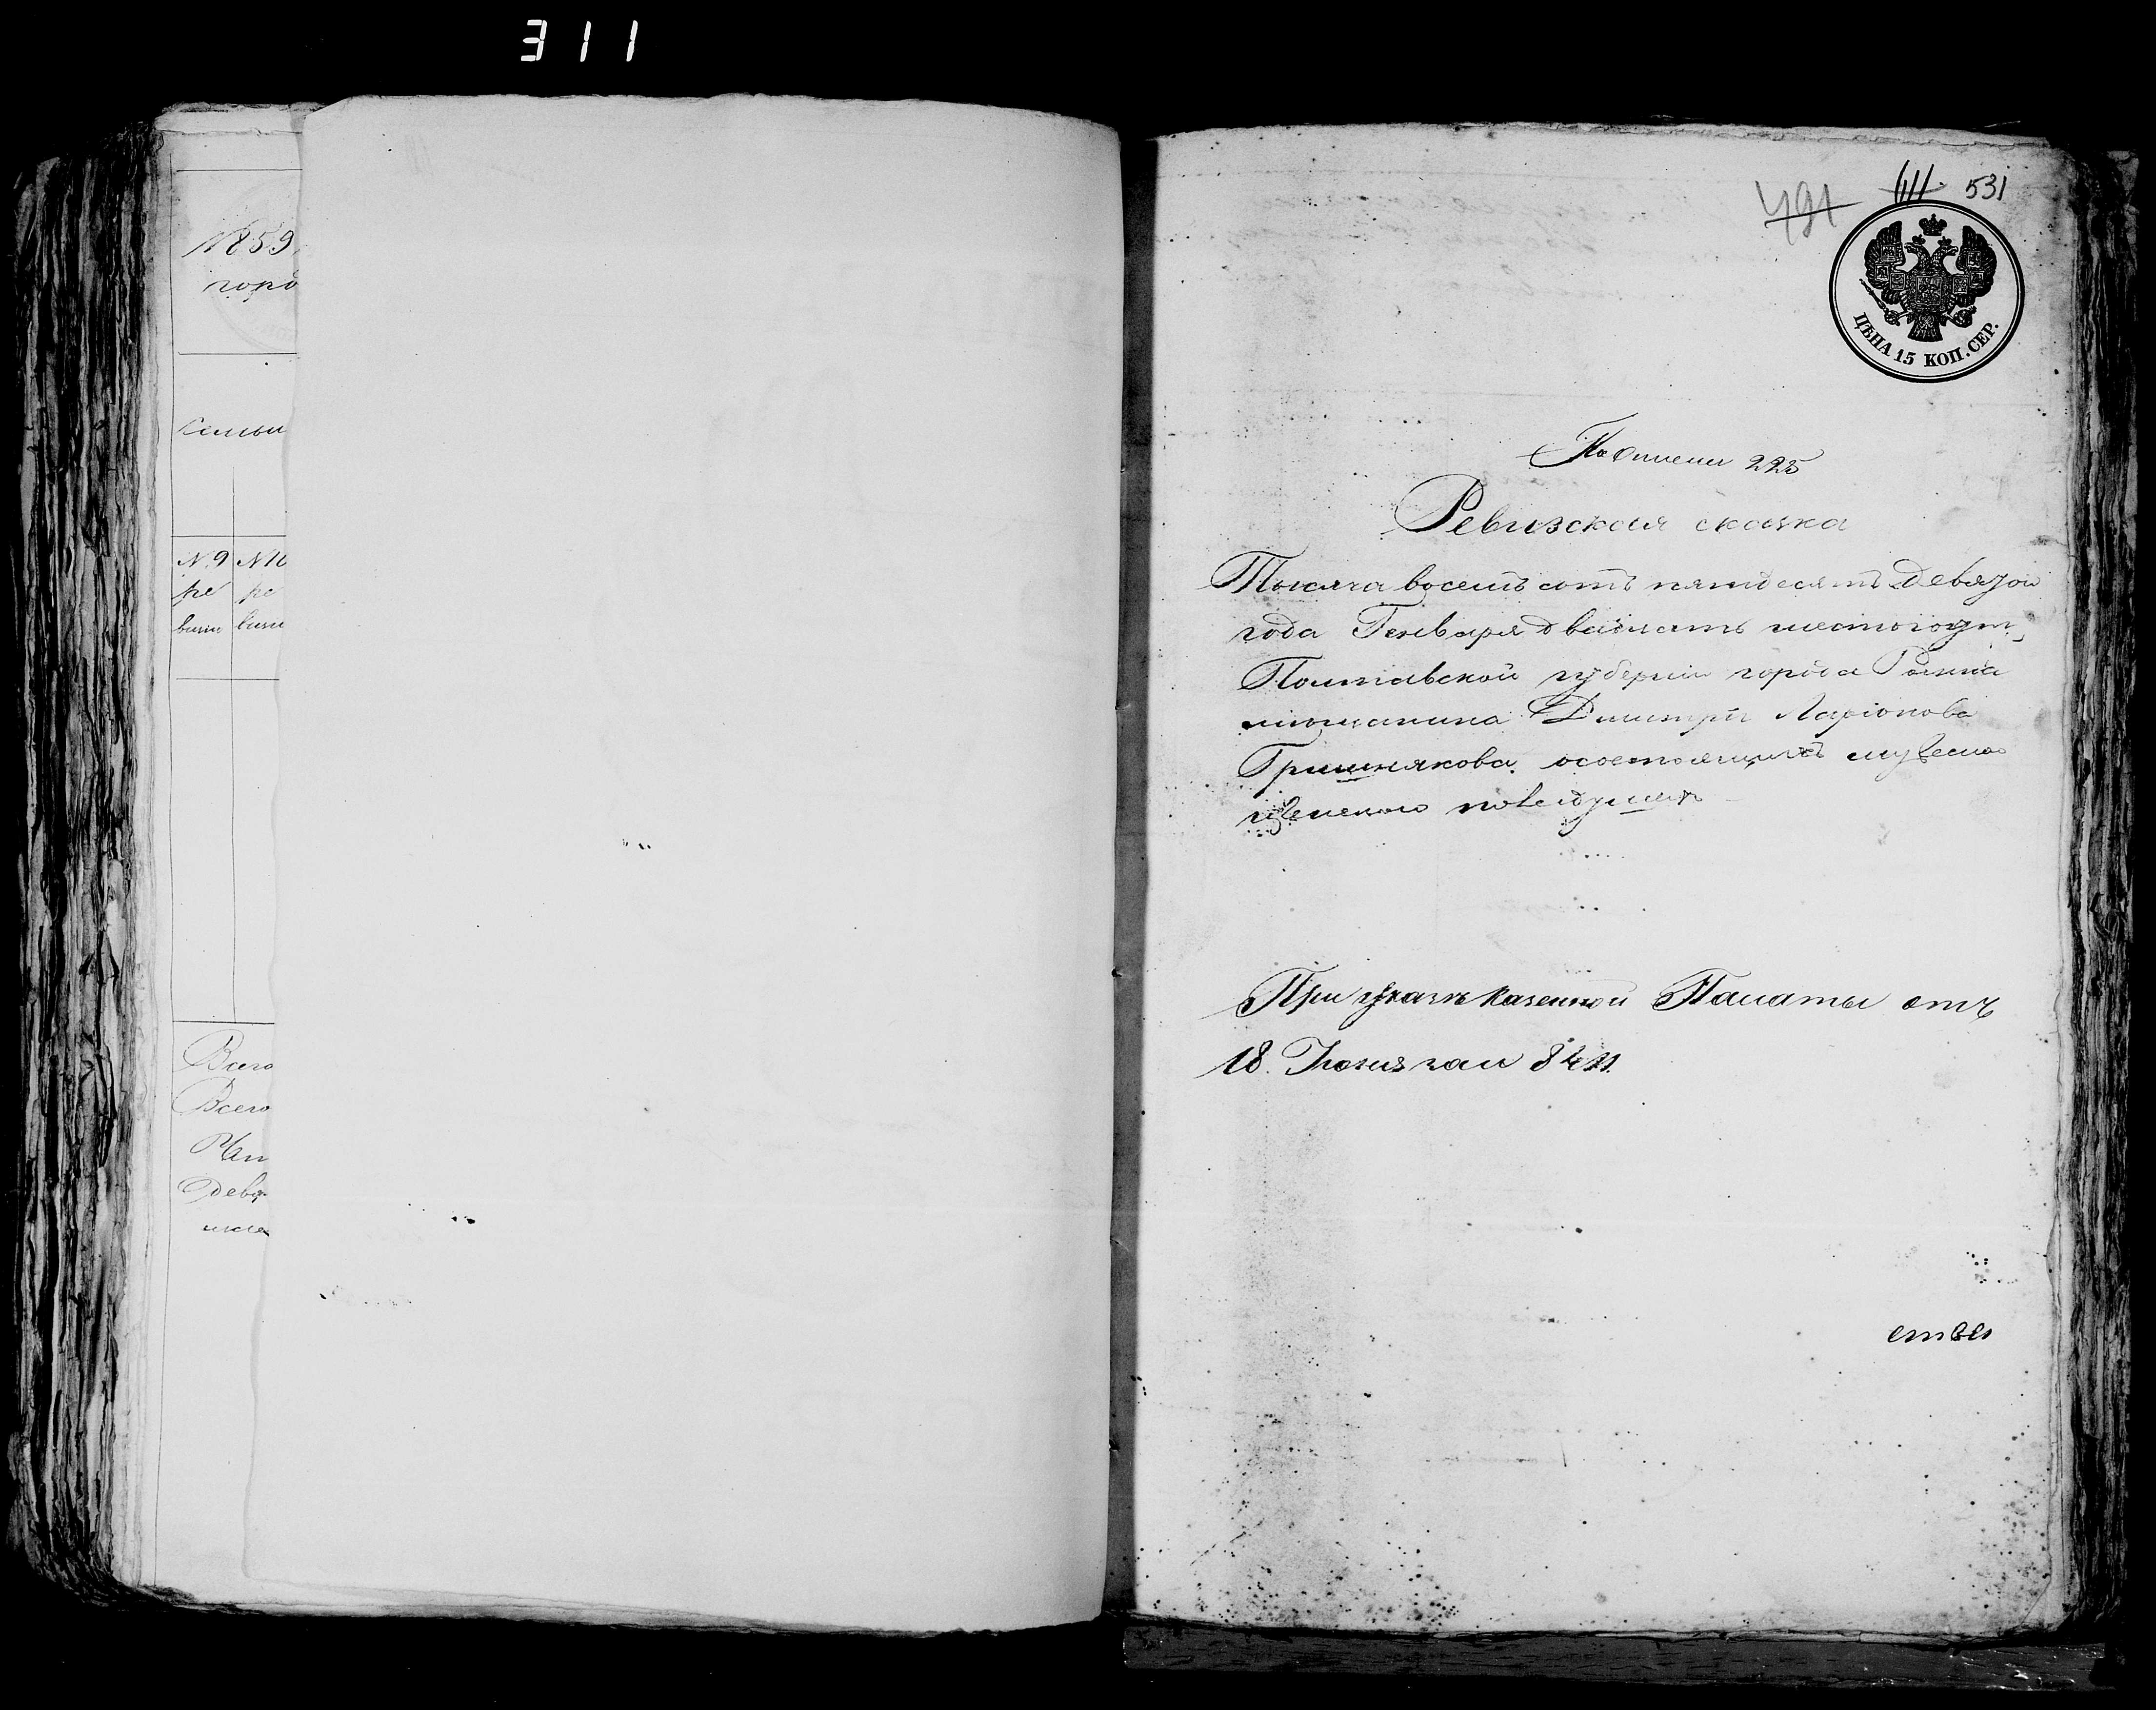 311
1859
горо
Семьи
№ 9 № 10
ре ре
визи визи
Всего
Всего
Девя
491 531
ЦѢНА 15 КОП. СЕР.
По описи 225
Ревизская сказка
Тысяча восемъ сотъ пятдесятъ девятои
года Генваря двадцать шестого дня
Полтавской губернии города Ромна
мещанина Дмитрія Ларіонова
Гришнякова о состоящихъ мужеска
и женскаго пола душах
При указѣ Казенной Палаты отъ
18. Іюня за №